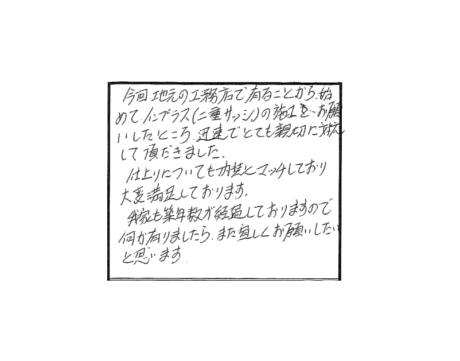 今回地元の工務店で有ることから、始
めてインプラス(二重サッシ)の施工を、お願
いしたところ、迅速でとても親切に対応
して頂だきました。
仕上りについても内装とマッチしており
大変満足しております。
我家も築年数が経過しておりますので
何か有りましたら、また宜しくお願いしたい
と思います。